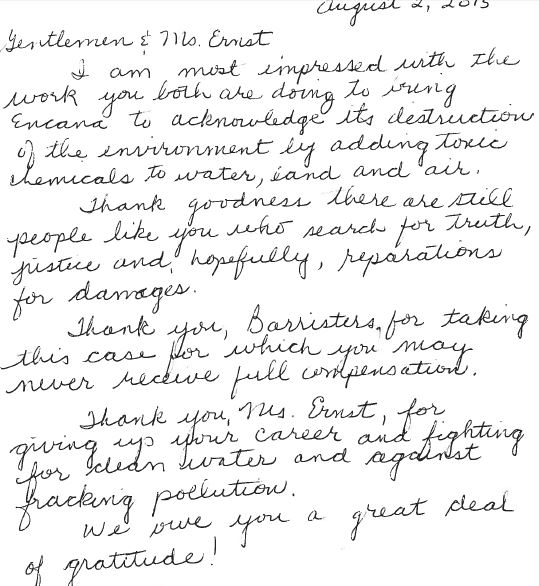 August 2, 2015
Gentlemen & Ms. Ernst
I am most impressed with the
work you both are doing to bring
Encana to acknowledge its destruction
of the environment by adding toxic
chemicals to water, land and air.
Thank goodness there are still
people like you who search for truth,
justice and, hopefully, reparations
for damages.
Thank you, Barristers, for taking
this case for which you may
never receive full compensation.
Thank you, Ms. Ernst, for
giving up your career and fighting
for clean water and against
fracking pollution.
We owe you a great deal
of gratitude!